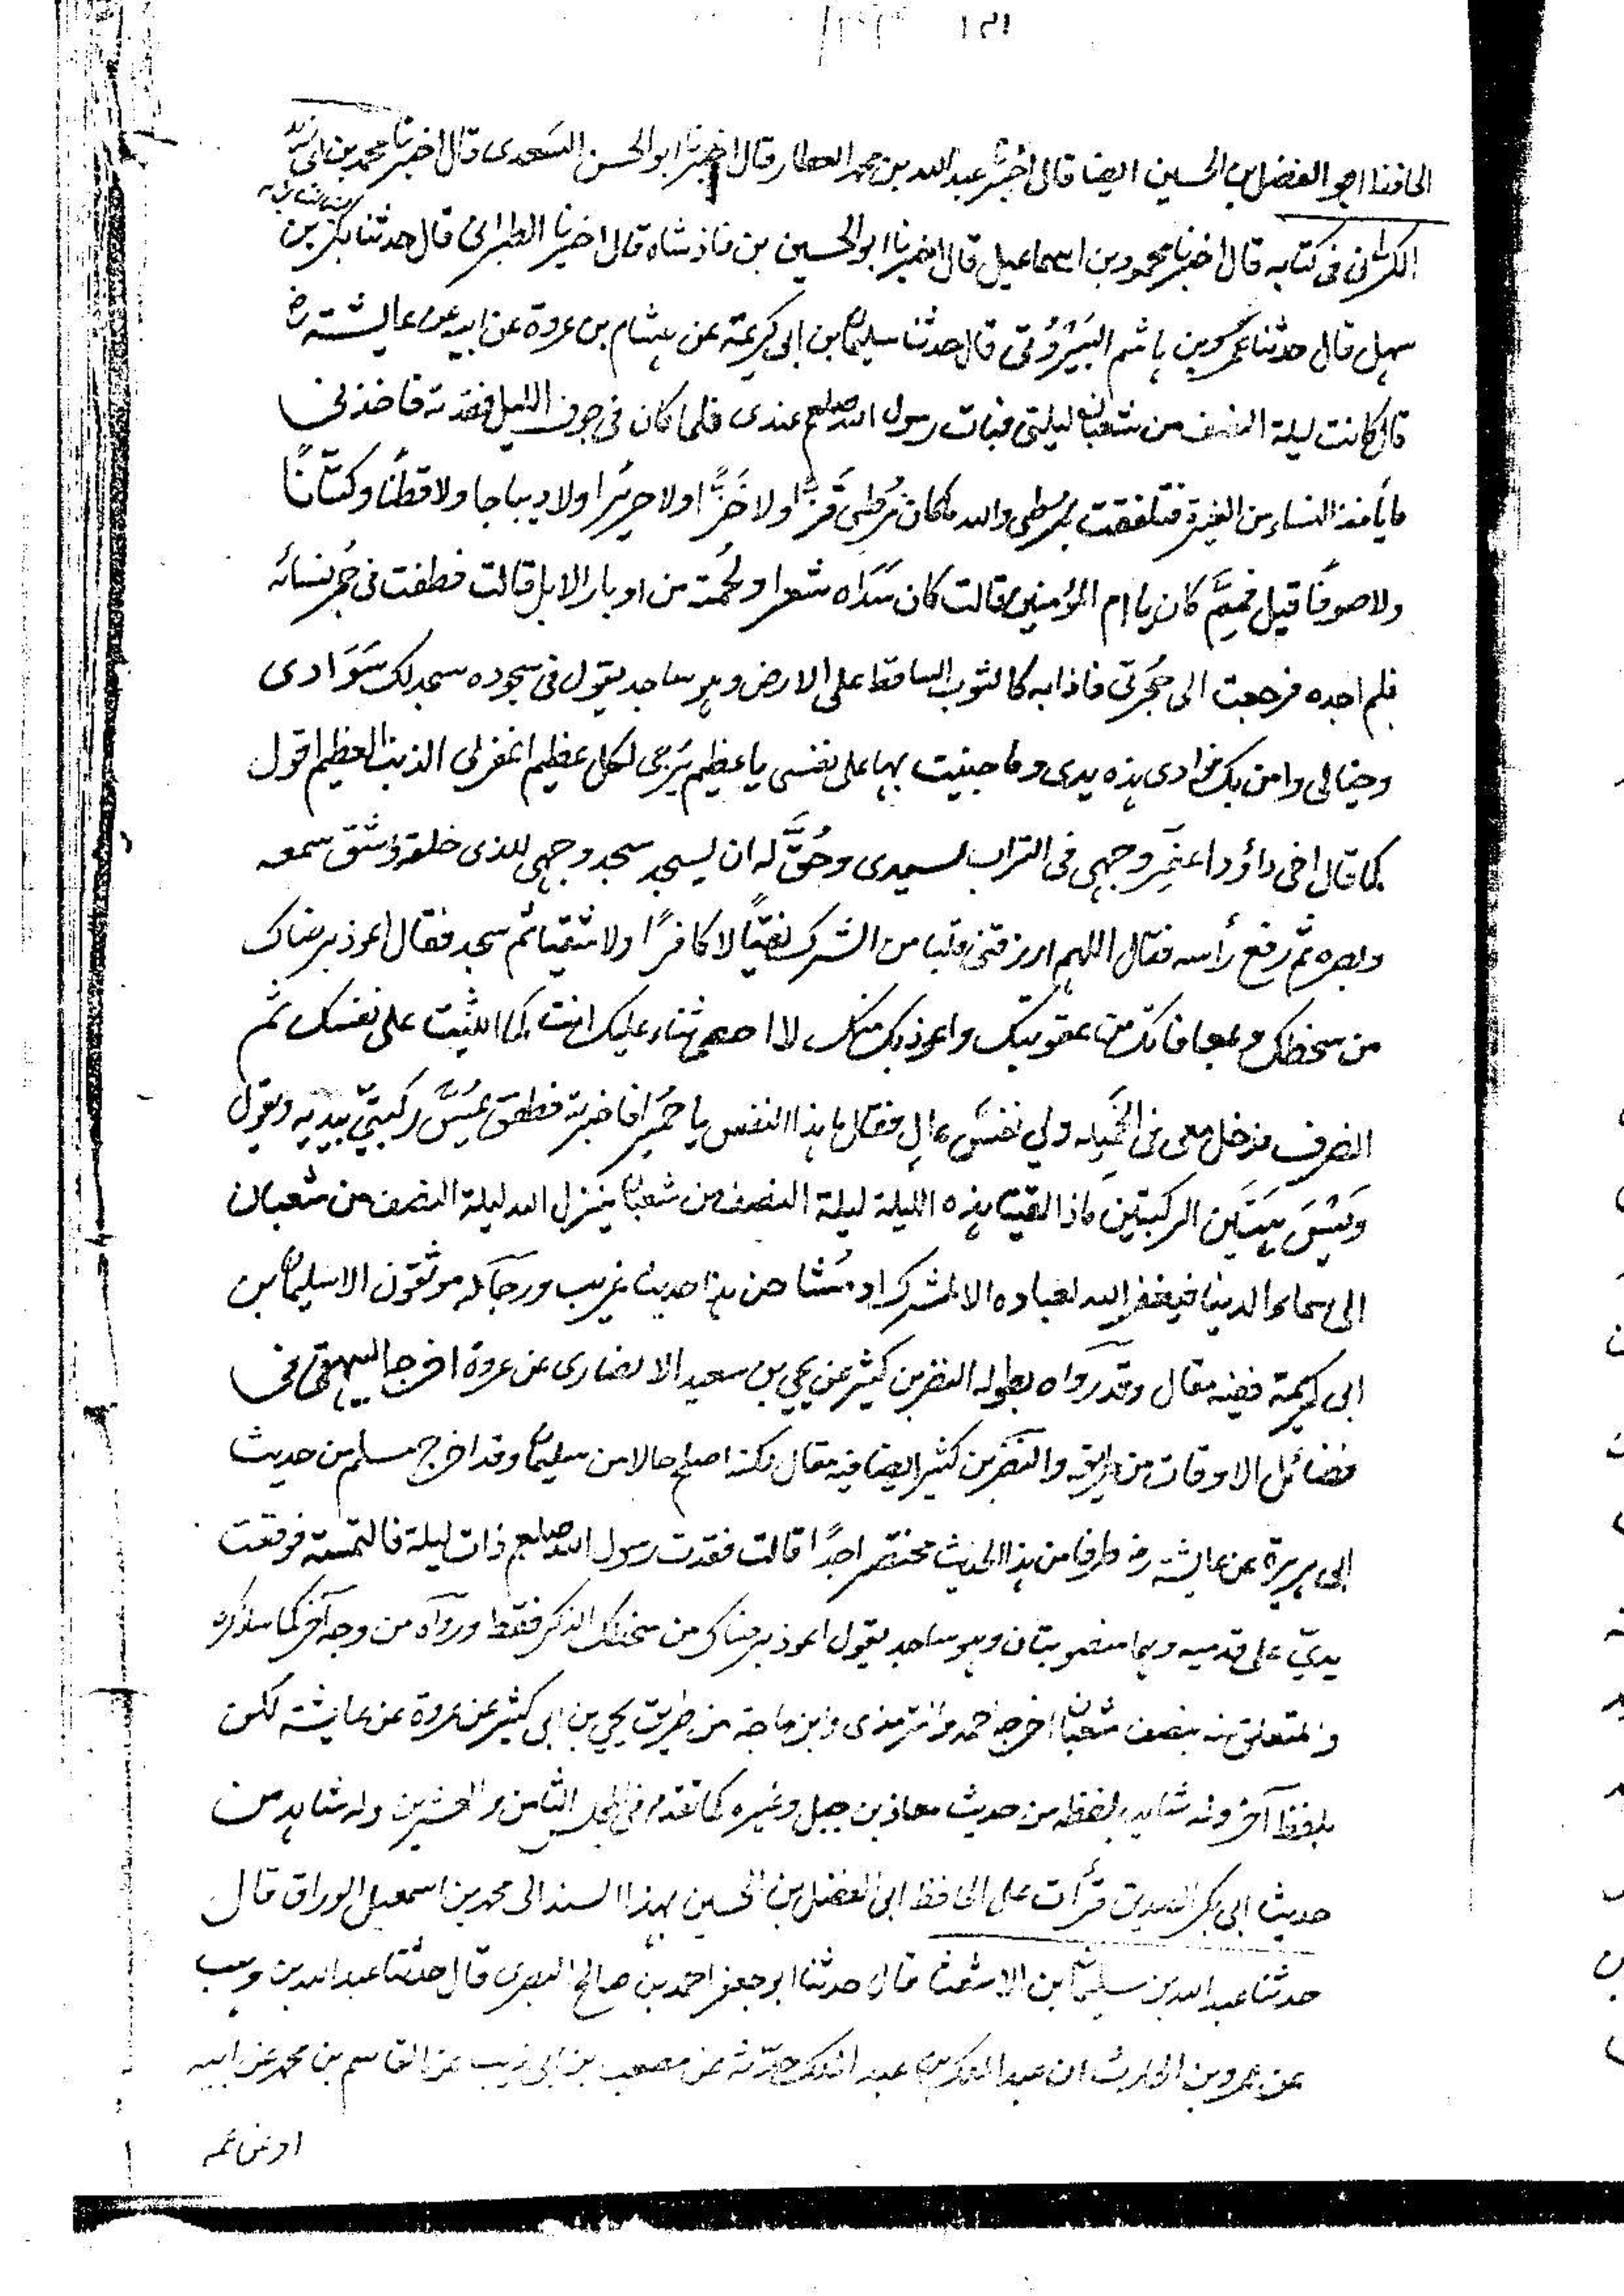 ١٥١
الحافظ ابو الفضل بن الحسين ايضا قال اخبرنا عبد الله بن محمد العطار قال اخبرنا ابو الحسن السعدى قال اخبرنا محمد بن ابى زيد
الكرانى فى كتابه قال اخبرنا محمود بن اسماعيل قال اخبرنا ابو الحسين بن فاذشاه قال اخبرنا الطبرانى قال حدثنا بكر بن
سهل قال حدثنا عمرو بن هاشم البَيْرُوتى قال حدثنا سليمان بن ابى كريمة عن هشام بن عروة عن ابيه عن عايشة رض
قال كانت ليلة النصف من شعبان ليلتى فبات رسول الله صلعم عندى فلما كان فى جوف الليل فقدته فاخذنى
ما يأخذ النساء من الغيرة فتلفقت بمرطى والله ما كان مُرطى قَزًّا ولا خَزًّا ولا حريرا ولا ديباجا ولا قطنا وكتّانًا
ولا صوفًا قيل فمِمَّ كان يا ام المؤمنين قالت كان سَدَاه شعرا ولُحمته من اوبار الابل قالت فطفت فى حُجَر نسائه
فلم اجده فرجعت الى حُجرتى فاذا به كالثوب الساقط على الارض وهو ساجد يقول فى سجوده سجد لك سَوَادى
وخيالى وامن بك فوادى هذه يدى وما جنيت بها على نفسى يا عظيم يُرجى لكل عظيم اغفر لى الذنب العظيم اقول
كما قال اخى داؤد اعفِّر وجهى فى التراب لسيدى وحُقَّ له ان يسجد سجد وجهى للذى خلقه وشق سمعه
وبصره ثم رفع رأسه فقال اللهم ارزقنى قلبا من الشرك نقيًّا لا كافرًا ولا شقيا ثم سجد فقال اعوذ برضاك
من سخطك وبمعافاتك من عقوبتك واعوذ بك منك لا احصى ثناء عليك انت كما اثنيت على نفسك ثم
انصرف فدخل معى فى الخميله ولى نفسٌ عالٍ فقال ما هذا النفس يا حُميرا فاخبرته فطفق يمسّ ركبتيّ بيديه ويقول
وَيسَ هَتَين الركبتين ماذا لقيتا هذه الليلة ليلة النصف من شعبان ينزل الله ليلة النصف من شعبان
الى سماء الدنيا فيغفر الله لعباده الا لمشرك او مُشاحن هذا حديث غريب ورجاله موثقون الا سليمان بن
ابى كريمة ففيه مقال وقد رواه بطوله النضر بن كثير عن يحيى بن سعيد الانصارى عن عروة اخرجها البيهقى فى
فضائل الاوقات من طريقه والنضر بن كثير ايضا فيه مقال لكنه اصلح حالا من سليمان وقد اخرج مسلم من حديث
ابى هريرة عن عايشة رض طرفا من هذا الحديث مختصرا جدًا قالت فقدت رسول الله صلعم ذات ليلة فالتمسته فوقعت
يديّ على قدميه وهما منصوبتان وهو ساجد يقول اعوذ برضاك من سخطك الذكر فقط ورواه من وجه آخر كما ساذكره
والمتعلق منه بنصف شعبان اخرجه احمد والترمذى وابن ماجة من طريق يحيى بن ابى كثير عن عروة عن عايشة لكن
بلفظ آخر وله شاهد بلفظه من حديث معاذ بن جبل وغيره كما تقدم فى المجلس الثامن والعشرين وله شاهد من
حديث ابى بكر الصديق قرأت على الحافظ ابى الفضل بن الحسين بهذا السند الى محمد بن اسمعيل الوراق قال
حدثنا عبد الله بن سليمان بن الاشعث قال حدثنا ابو جعفر احمد بن صالح المصرى قال حدثنا عبد الله بن وهب
عن عمرو بن الحارث ان عبد الملك بن عبد الملك حدّثه عن مصعب بن ابى ذيب عن القاسم بن محمد عن ابيه
او عن عمه